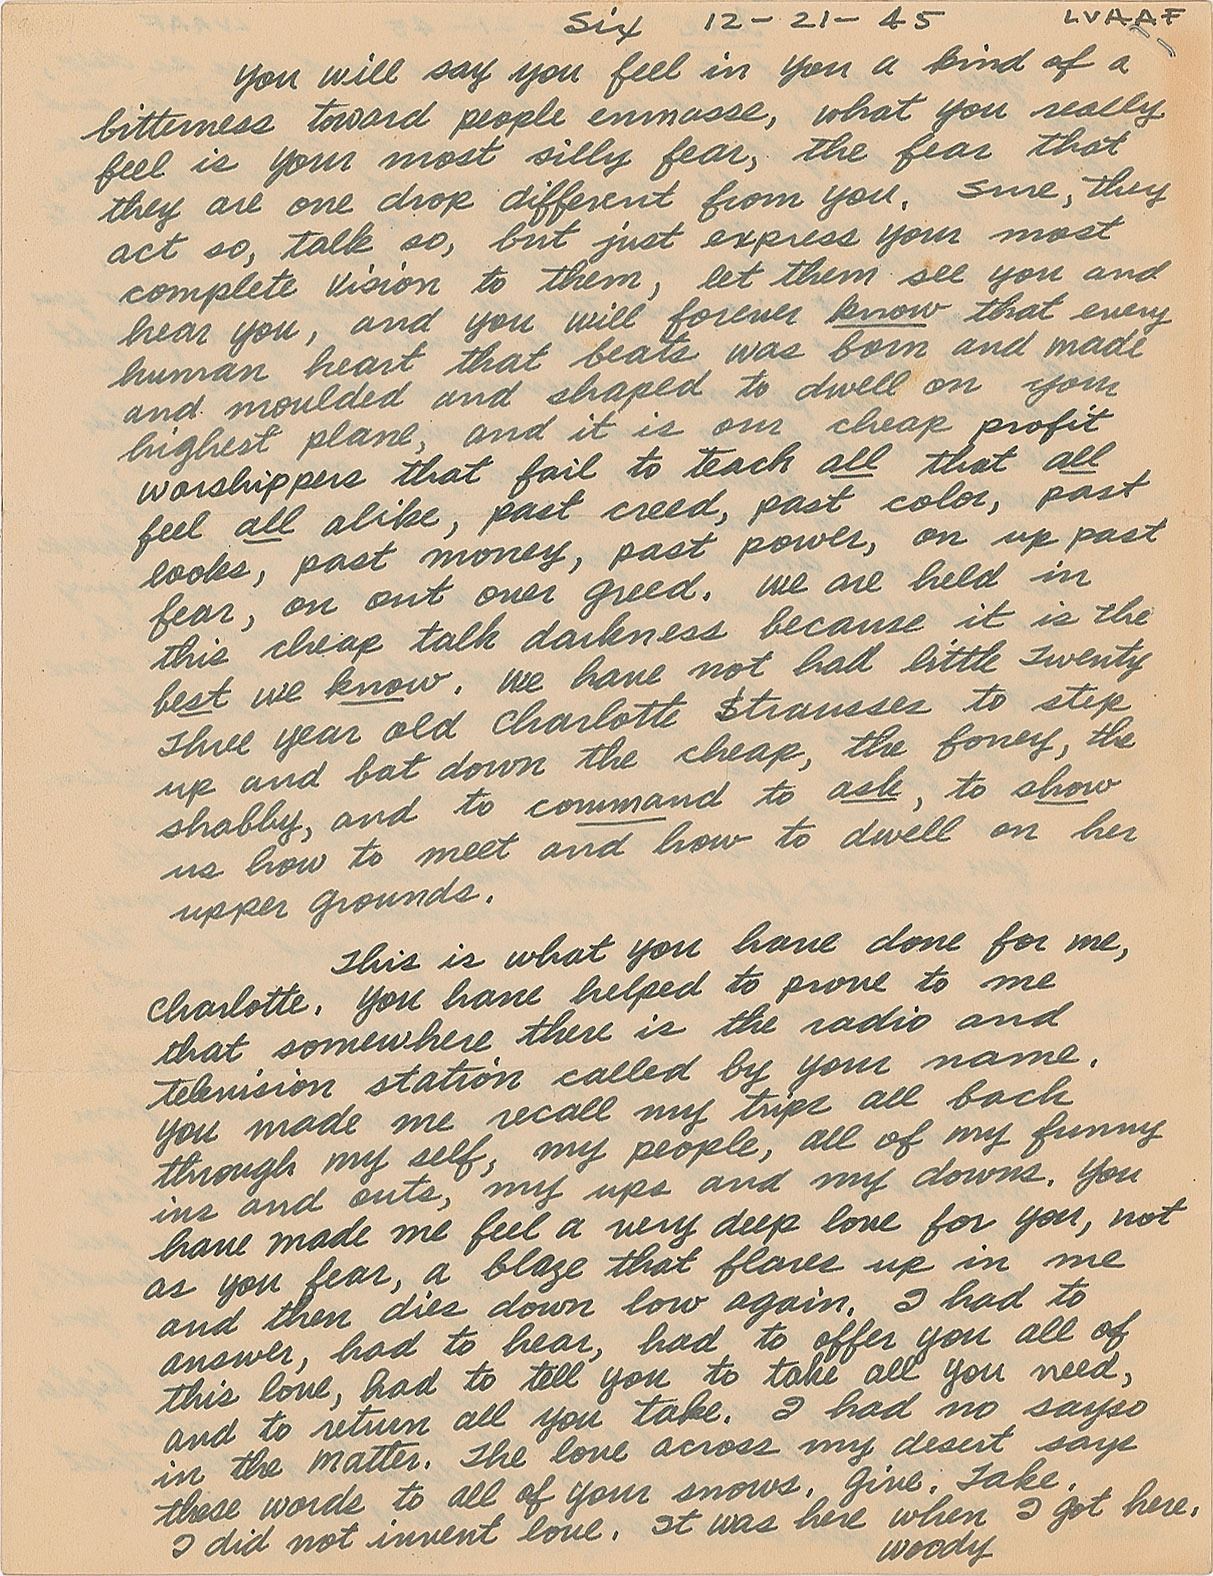 Six 12-21-45 LVAAF
You will say you feel in you a kind of a
bitterness toward people enmasse, what you really
feel is your most silly fear, the fear that
they are one drop different from you. Sure, they
act so, talk so, but just express your most
complete vision to them, let them see you and
hear you, and you will forever know that every
human heart that beats was born and made
and moulded and shaped to dwell on your
highest plane, and it is our cheap profit
worshippers that fail to teach all that all
feel all alike, past creed, past color, past
looks, past money, past power, on up past
fear, on out over greed. We are held in
this cheap talk darkness because it is the
best we know. We have not had little Twenty
Three year old Charlotte Strausses to step
up and bat down the cheap, the foney, the
shabby, and to command to ask, to show
us how to meet and how to dwell on her
upper grounds.
This is what you have done for me,
Charlotte. You have helped to prove to me
that somewhere there is the radio and
television station called by your name.
You made me recall my trips all back
through my self, my people, all of my funny
ins and outs, my ups and my downs. You
have made me feel a very deep love for you, not
as you fear, a blaze that flares up in me
and then dies down low again. I had to
answer, had to hear, had to offer you all of
this love, had to tell you to take all you need,
and to return all you take. I had no sayso
in the matter. The love across my desert says
these words to all of your snows. Give. Take.
I did not invent love. It was here when I got here.
Woody